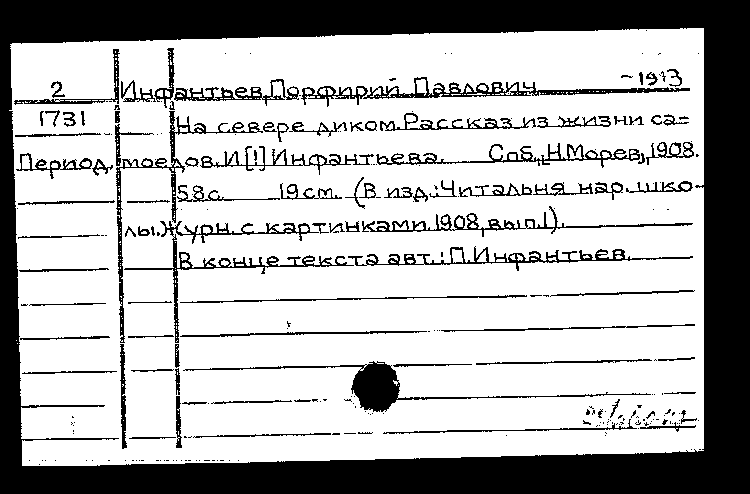 2 Инфантьев, Порфирий Павлович ~1913
1731 На севере диком. Рассказ из жизни са=
Период. моедов. И[!] Инфантьева. Спб., "Н. Морев", 1908.
58с. 19см. (В изд.: Читальня нар. шко-
лы. Журн. с картинками. 1908, вып. 1).
В конце текста авт.: П. Инфантьев.